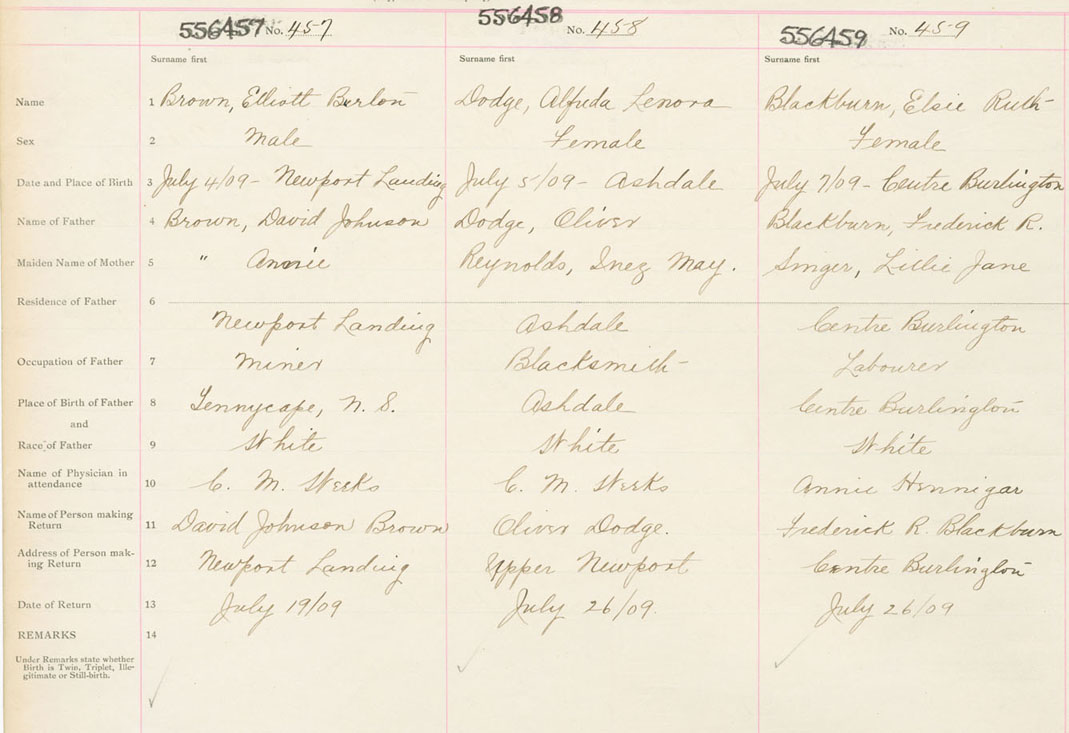 556457 No. 457 556458 No. 458 556459 No. 459
Surname first Surname first Surname first
Name 1 Brown, Elliott Burlon Dodge, Alfreda Lenora Blackburn, Elsie Ruth
Sex 2 Male Female Female
Date and Place of Birth 3 July 4/09 - Newport Landing July 5/09 - Ashdale July 7/09 - Centre Burlington
Name of Father 4 Brown, David Johnson Dodge, Oliver Blackburn, Frederick R.
Maiden Name of Mother 5 " Annie Reynolds, Inez May. Singer, Lillie Jane
Residence of Father 6
Newport Landing Ashdale Centre Burlington
Occupation of Father 7 Miner Blacksmith Labourer
Place of Birth of Father 8 Tennycape, N. S. Ashdale Centre Burlington
and
Race of Father 9 White White White
Name of Physician in
attendance 10 C. M. Weeks C. M. Weeks Annie Hennigar
Name of Person making
Return 11 David Johnson Brown Oliver Dodge. Frederick R. Blackburn
Address of Person mak-
ing Return 12 Newport Landing Upper Newport Centre Burlington
Date of Return 13 July 19/09 July 26/09. July 26/09
REMARKS 14
Under Remarks state whether
Birth is Twin, Triplet, Ille-
gitimate or Still-birth.